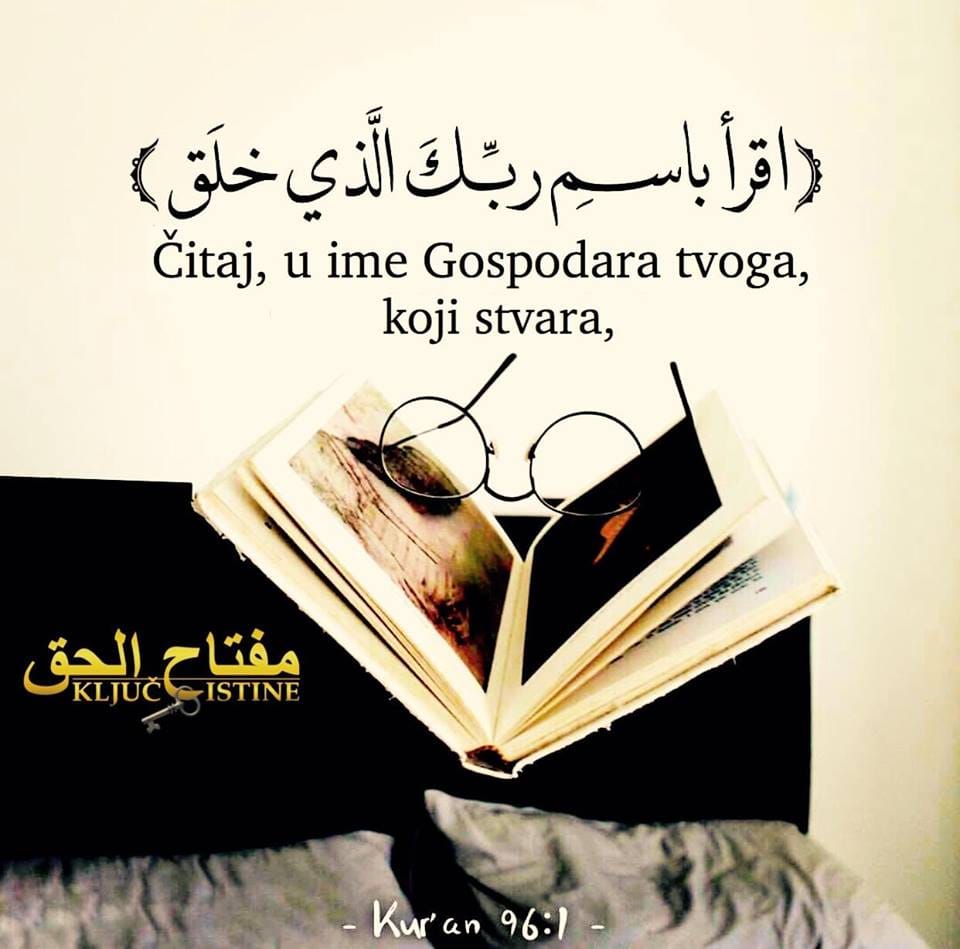 ﴿اقرأ باسمِ ربِّكَ الَّذي خلَق﴾
Čitaj, u ime Gospodara tvoga,
koji stvara,
مفتاح الحق
KLJUČ ISTINE
- Kur'an 96:1 -